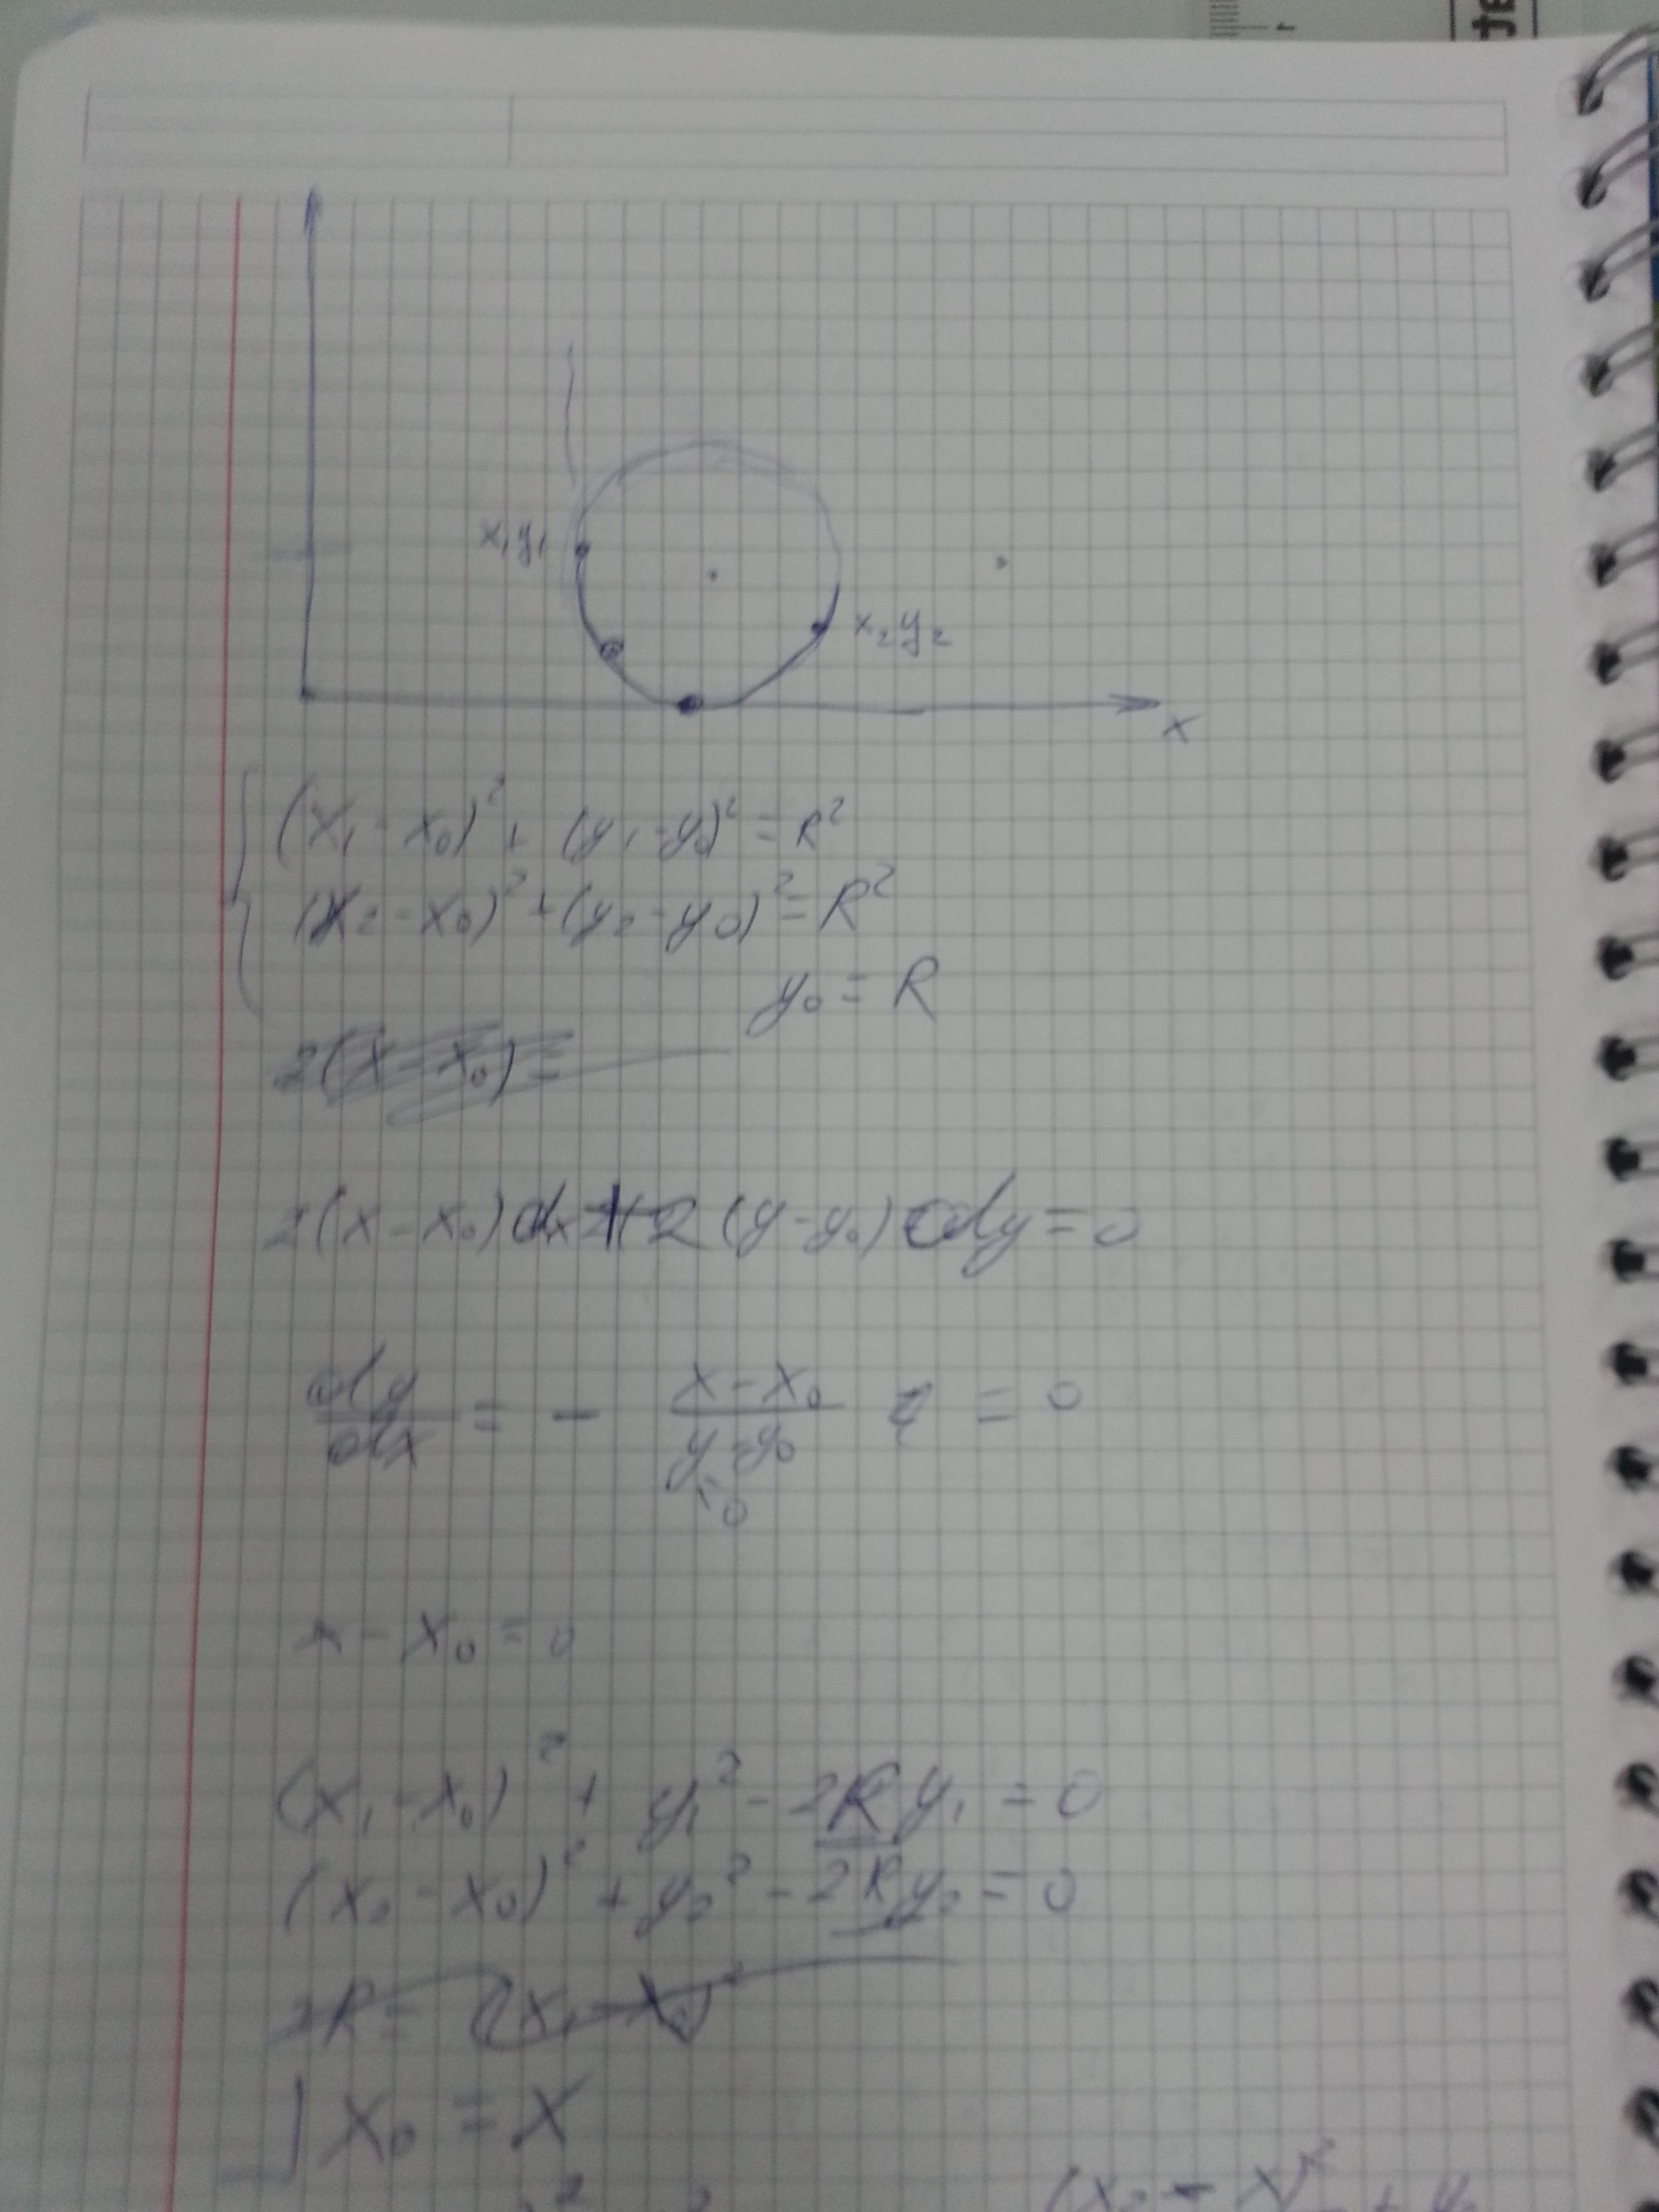 x₁y₁
x₂y₂
x
(x₁ - x₀)² + (y₁ - y₀)² = R²
(x₂ - x₀)² + (y₂ - y₀)² = R²
y₀ = R
2(x - x₀) =
2(x - x₀)dx + 2(y - y₀)dy = 0
dy/dx = - (x - x₀)/(y - y₀) = 0
x - x₀ = 0
(x₁ - x₀)² + y₁² - 2Ry₁ = 0
(x₂ - x₀)² + y₂² - 2Ry₂ = 0
2R = (x₁ - x₀)
x₀ = x